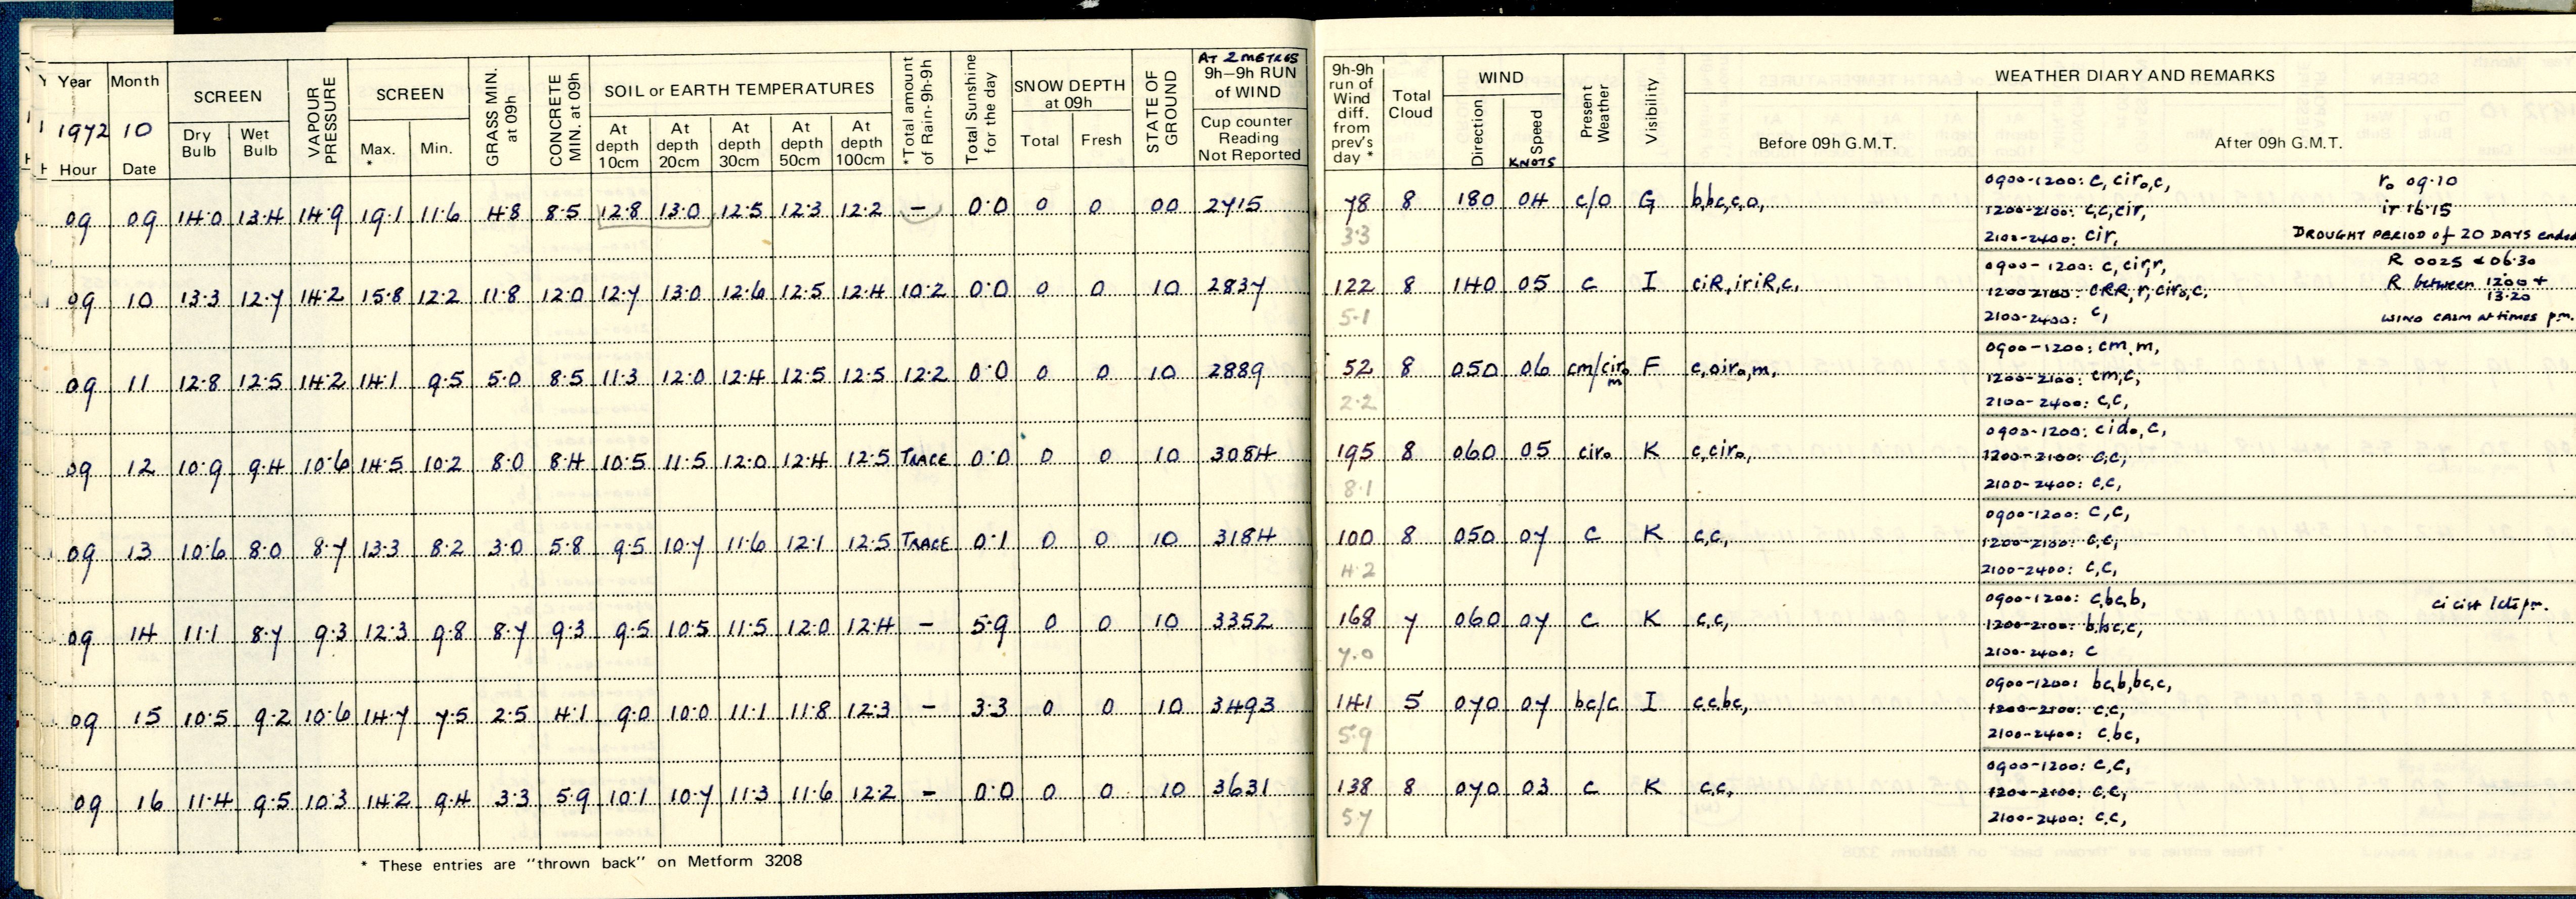 Year Month SCREEN VAPOUR PRESSURE SCREEN GRASS MIN. at 09h CONCRETE MIN. at 09h SOIL or EARTH TEMPERATURES *Total amount of Rain-9h-9h Total Sunshine for the day SNOW DEPTH at 09h STATE OF GROUND AT 2 METRES 9h-9h RUN of WIND 9h-9h run of Wind diff. from prev's day * Total Cloud WIND Present Weather Visibility WEATHER DIARY AND REMARKS
1972 10 Dry Bulb Wet Bulb Max. * Min. At depth 10cm At depth 20cm At depth 30cm At depth 50cm At depth 100cm Total Fresh Cup counter Reading Not Reported Direction Speed KNOTS Before 09h G.M.T. After 09h G.M.T.
Hour Date
0900-1200: c, ciro,c, ro 09·10
09 09 14·0 13·4 14·9 19·1 11·6 4·8 8·5 12·8 13·0 12·5 12·3 12·2 - 0·0 0 0 00 2715 78 8 180 04 c/o G b,bc,c,o, 1200-2100: c,c,cir, ir 16·15
3·3 2100-2400: cir, DROUGHT PERIOD of 20 DAYS ended
0900-1200: c, cir,r, R 0025 & 06·30
09 10 13·3 12·7 14·2 15·8 12·2 11·8 12·0 12·7 13·0 12·6 12·5 12·4 10·2 0·0 0 0 10 2837 122 8 140 05 c I ciR,iriR,c, 1200-2100: cRR,r,ciro,c, R between 1200 + 13·20
5·1 2100-2400: c, WIND CALM at times p.m.
0900-1200: cm,m,
09 11 12·8 12·5 14·2 14·1 9·5 5·0 8·5 11·3 12·0 12·4 12·5 12·5 12·2 0·0 0 0 10 2889 52 8 050 06 cm/ciro m F c,oiro,m, 1200-2100: cm,c,
2·2 2100-2400: c,c,
0900-1200: cido,c,
09 12 10·9 9·4 10·6 14·5 10·2 8·0 8·4 10·5 11·5 12·0 12·4 12·5 TRACE 0·0 0 0 10 3084 195 8 060 05 ciro K c,ciro, 1200-2100: c,c,
8·1 2100-2400: c,c,
0900-1200: c,c,
09 13 10·6 8·0 8·7 13·3 8·2 3·0 5·8 9·5 10·7 11·6 12·1 12·5 TRACE 0·1 0 0 10 3184 100 8 050 07 c K c,c, 1200-2100: c,c,
4·2 2100-2400: c,c,
0900-1200: c,bc,b,
09 14 11·1 8·7 9·3 12·3 9·8 8·7 9·3 9·5 10·5 11·5 12·0 12·4 - 5·9 0 0 10 3352 168 7 060 07 c K c,c, 1200-2100: b,bc,c,
7·0 2100-2400: c
0900-1200: bc,b,bc,c,
09 15 10·5 9·2 10·6 14·7 7·5 2·5 4·1 9·0 10·0 11·1 11·8 12·3 - 3·3 0 0 10 3493 141 5 070 07 bc/c I c,c,bc, 1200-2100: c,c,
5·9 2100-2400: c,bc,
0900-1200: c,c,
09 16 11·4 9·5 10·3 14·2 9·4 3·3 5·9 10·1 10·7 11·3 11·6 12·2 - 0·0 0 0 10 3631 138 8 070 03 c K c,c, 1200-2100: c,c,
5·7 2100-2400: c,c,
* These entries are "thrown back" on Metform 3208